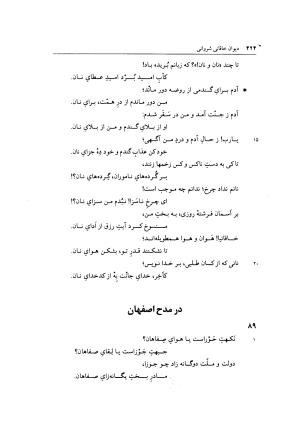 ۲۲۴ دیوان خاقانی شروانی
تا چند «نان و نان»؟ که زبانم بُریده باد!
کآب امید بُرد امیدِ عطایِ نان.
آدم برایِ گندمی از روضه دور ماند؛
من دور ماندم از درِ همّت، برایِ نان.
آدم ز جنّت آمد و من در سَقَر شدم:
او از بلایِ گندم و من از بلایِ نان.
۱۵ یارب! ز حالِ آدم و دردِ من آگهی؛
خود کن عذابِ گندم و خود دِهْ جزایِ نان.
تا کی به دستِ ناکس و کس زخمها زنند،
بر گُرده‌هایِ ناموران، گِرده‌هایِ نان؟!
نانم نداد چرخ؛ ندانم چه موجب است؟
ای چرخِ ناسزا! نبُدم من سزایِ نان؟!
بر آسمان فرشتهٔ روزی، به بختِ من،
منسوخ کرد آیتِ رزق از ادایِ نان.
خاقانیا! هَوان و هوا همطویله‌اند؛
تا نشکنند قدرِ تو، بشکن هوایِ نان.
۲۰ نانی که از کسان طلبی، بر خدا نویس؛
کآخر، خدایِ جانْت بِهْ از کدخدایِ نان.
در مدح اصفهان
۸۹
۱ نکهتِ حوراست یا هوایِ صفاهان؟
جبهتِ جَوْزاست یا لِقایِ صفاهان؟
دولت و ملّت دوگانه زاد چو جوزا،
مادرِ بختِ یگانه‌زایِ صفاهان.